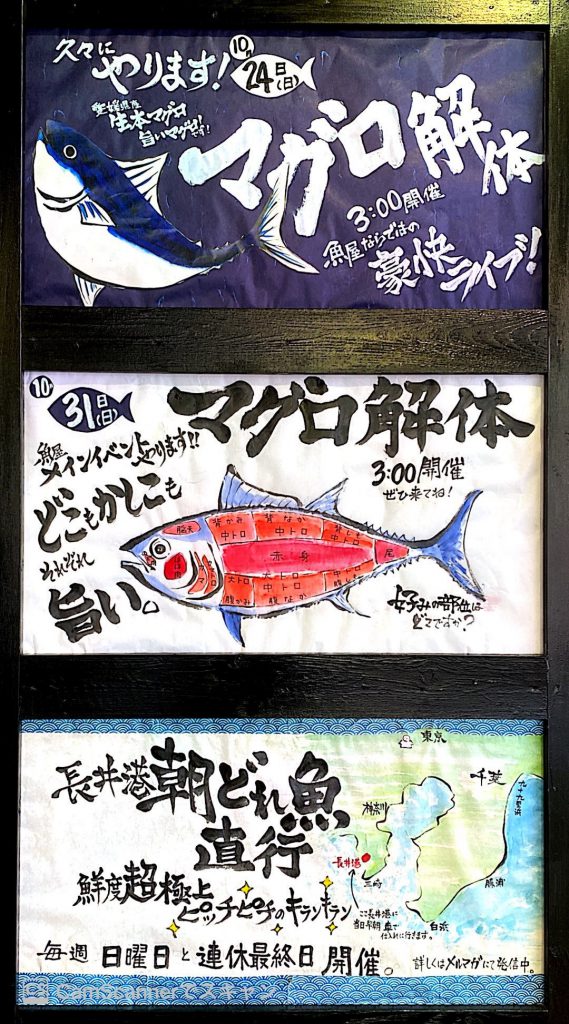 久々に
やります!
10月
24日(日)
愛媛県産
生本マグロ
旨いマグロ!
です!
マグロ解体
3:00開催
魚屋ならではの
豪快ライブ!
10月
31日(日)
マグロ解体
魚屋
メインイベントやります!!
3:00開催
ぜひ来てね!
どこもかしこも
それぞれ
旨い。
脳天
背かみ
中トロ
背なか
中トロ
中トロ
赤身
尾
カマ
大トロ
中トロ
大トロ
中トロ
中トロ
腹かみ
腹なか
好みの部位は
どこですか?
長井港朝どれ魚
直行
鮮度超極上
ピッチピチのキランキラン
毎週 日曜日と連休最終日開催。
東京
千葉
九十九里浜
神奈川
長井港
三崎
勝浦
白浜
ここ長井港に
当日早朝 車で
仕入れに行きます。
詳しくはメルマガにて発信中。
CS CamScannerでスキャン